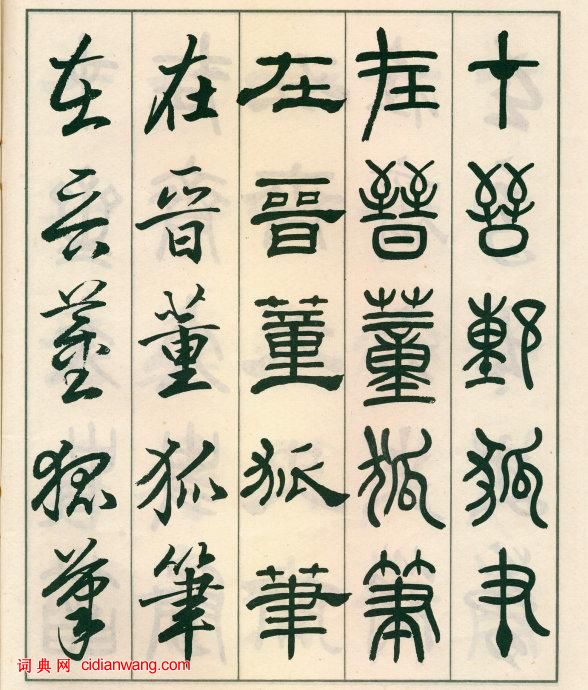 在晉董狐筆
在晉董狐筆
在晉董狐筆
在晉董狐筆
在晉董狐筆
词典网 cidianwang.com